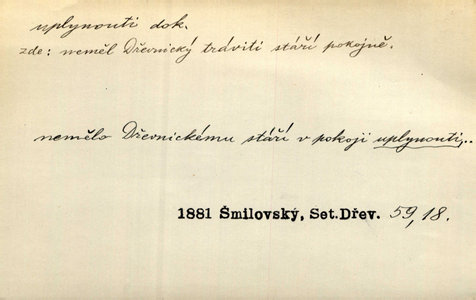 uplynouti dok.
zde: neměl Dřevnický tráviti stáří pokojně.
nemělo Dřevnickému stáří v pokoji uplynouti...
1881 Šmilovský, Set.Dřev. 59,18.